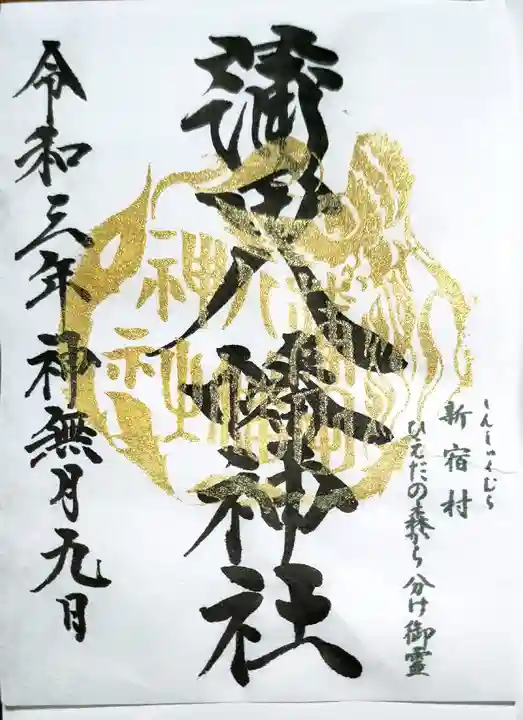 しんしゅくむら
新宿村
ひえだの森から分け御靈
蒲田八幡神社
八幡
神社
令和三年神無月九日